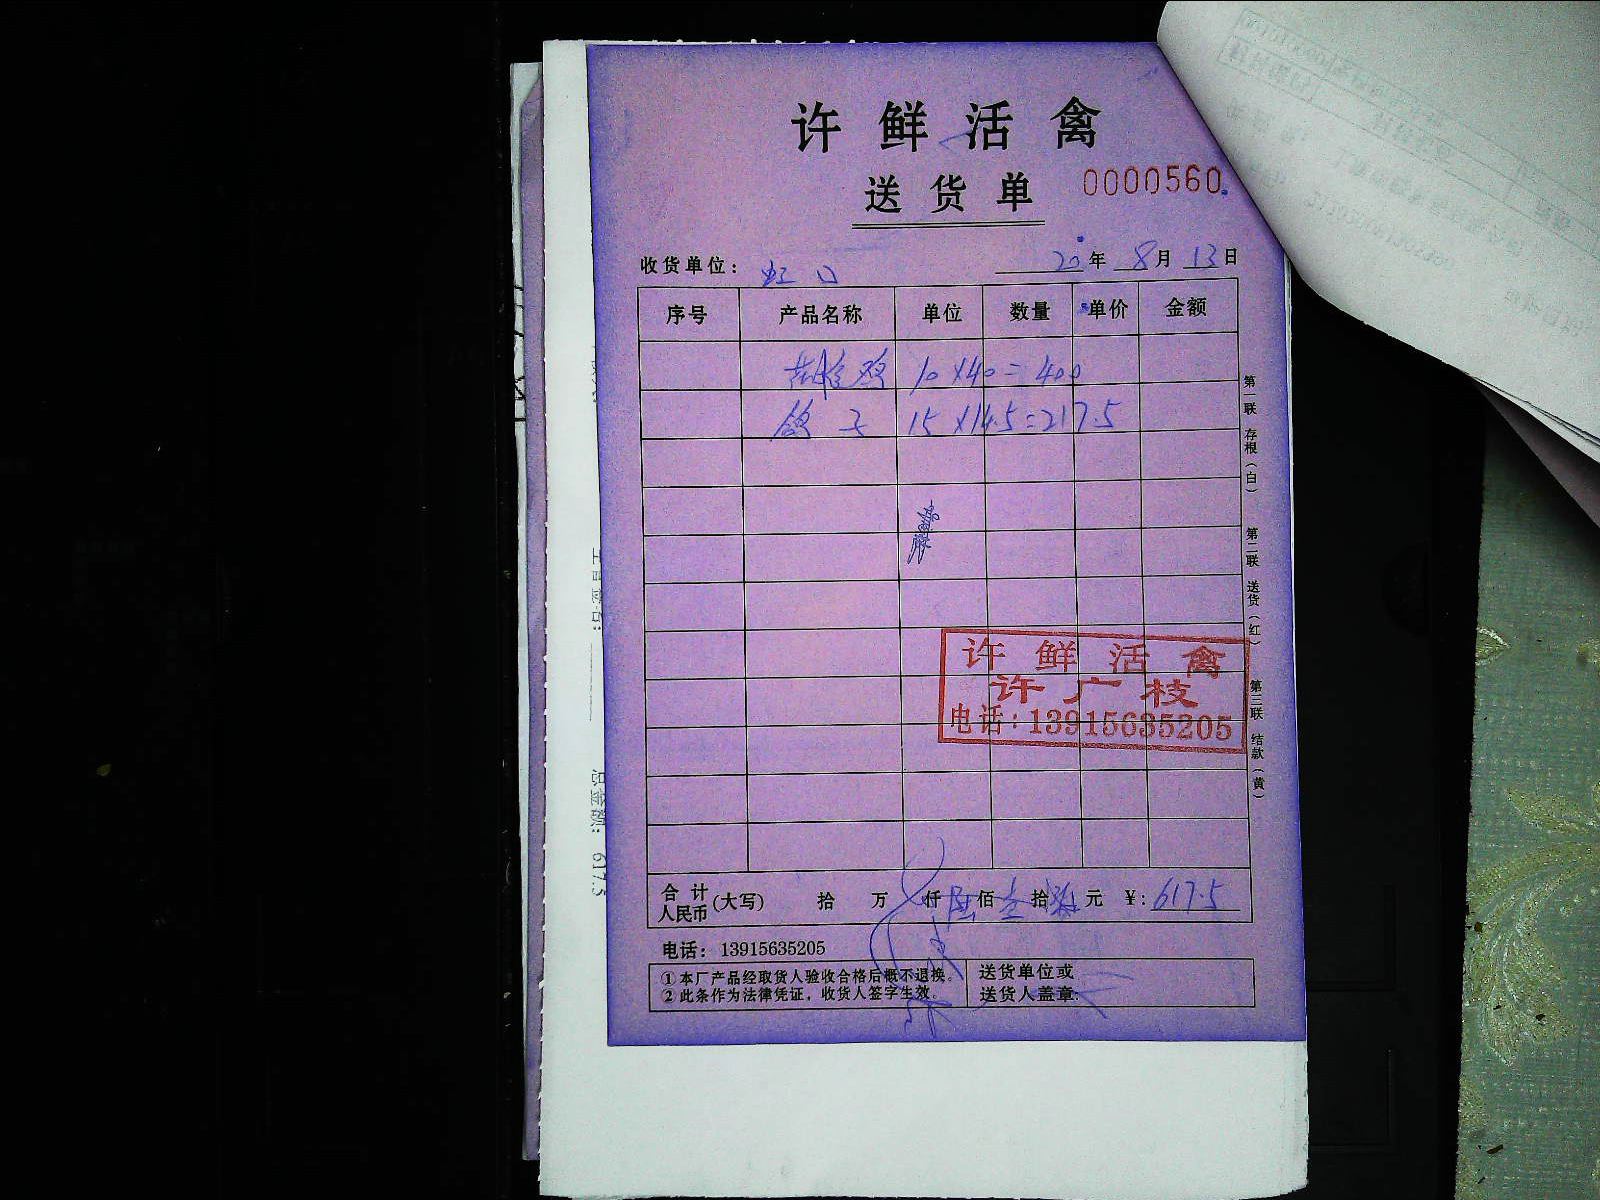 许鲜活禽
送货单 0000560
收货单位: 虹口 20年8月13日
序号 产品名称 单位 数量 单价 金额
鸡 10×40=400
鸽子 15×14.5=217.5
许鲜活禽
许广枝
电话:13915635205
合计人民币(大写) 拾 万 仟 陆佰 壹拾 柒元 ¥:617.5
电话: 13915635205
①本厂产品经取货人验收合格后概不退换。
②此条作为法律凭证，收货人签字生效。
送货单位或
送货人盖章:
第一联 存根(白) 第二联 送货(红) 第三联 结款(黄)
总金额: 617.5